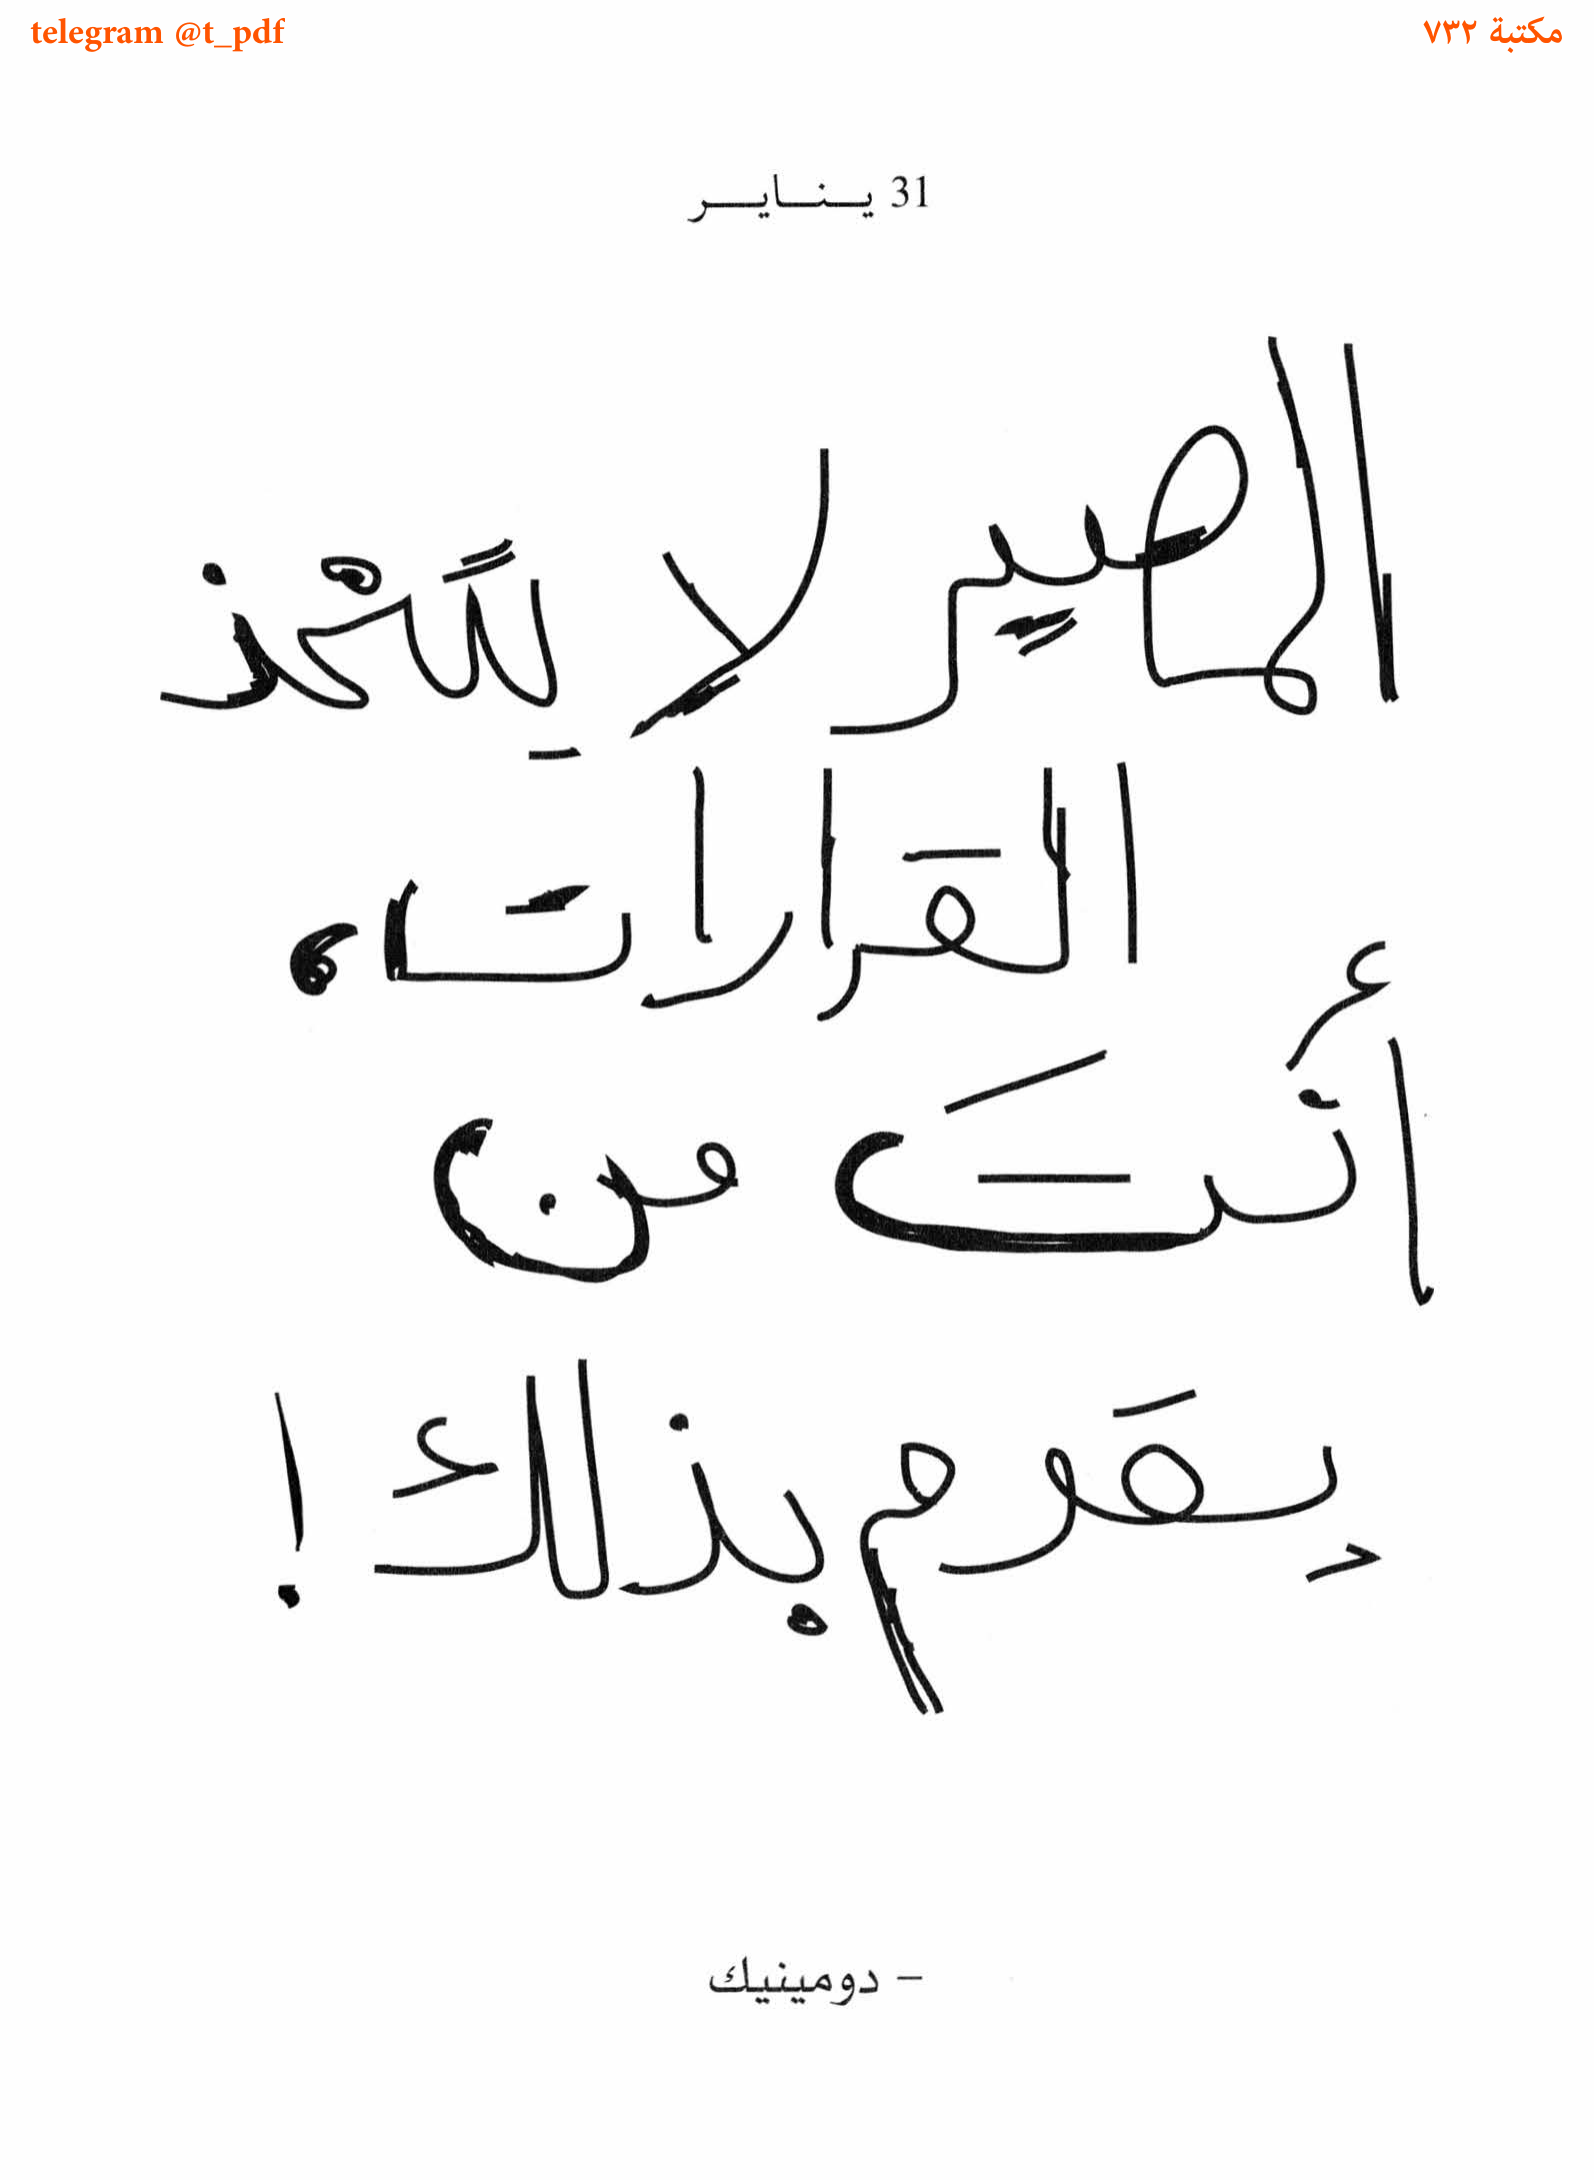 telegram @t_pdf
مكتبة ٧٣٢
31 ينايـر
المصير لا يتّخذ
القرارات،
أنتَ من
يقوم بذلك!
– دومينيك